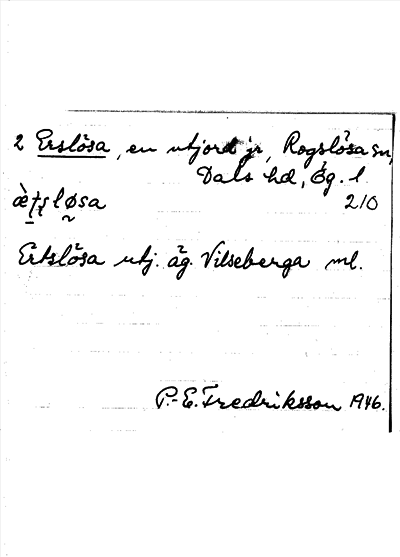 2 Erslösa, en utjord jr, Rogslösa sn,
Dals hd, Ög. l.
210
Ertslösa utj. äg. Vilseberga ml.
P.-E. Fredriksson 1946.